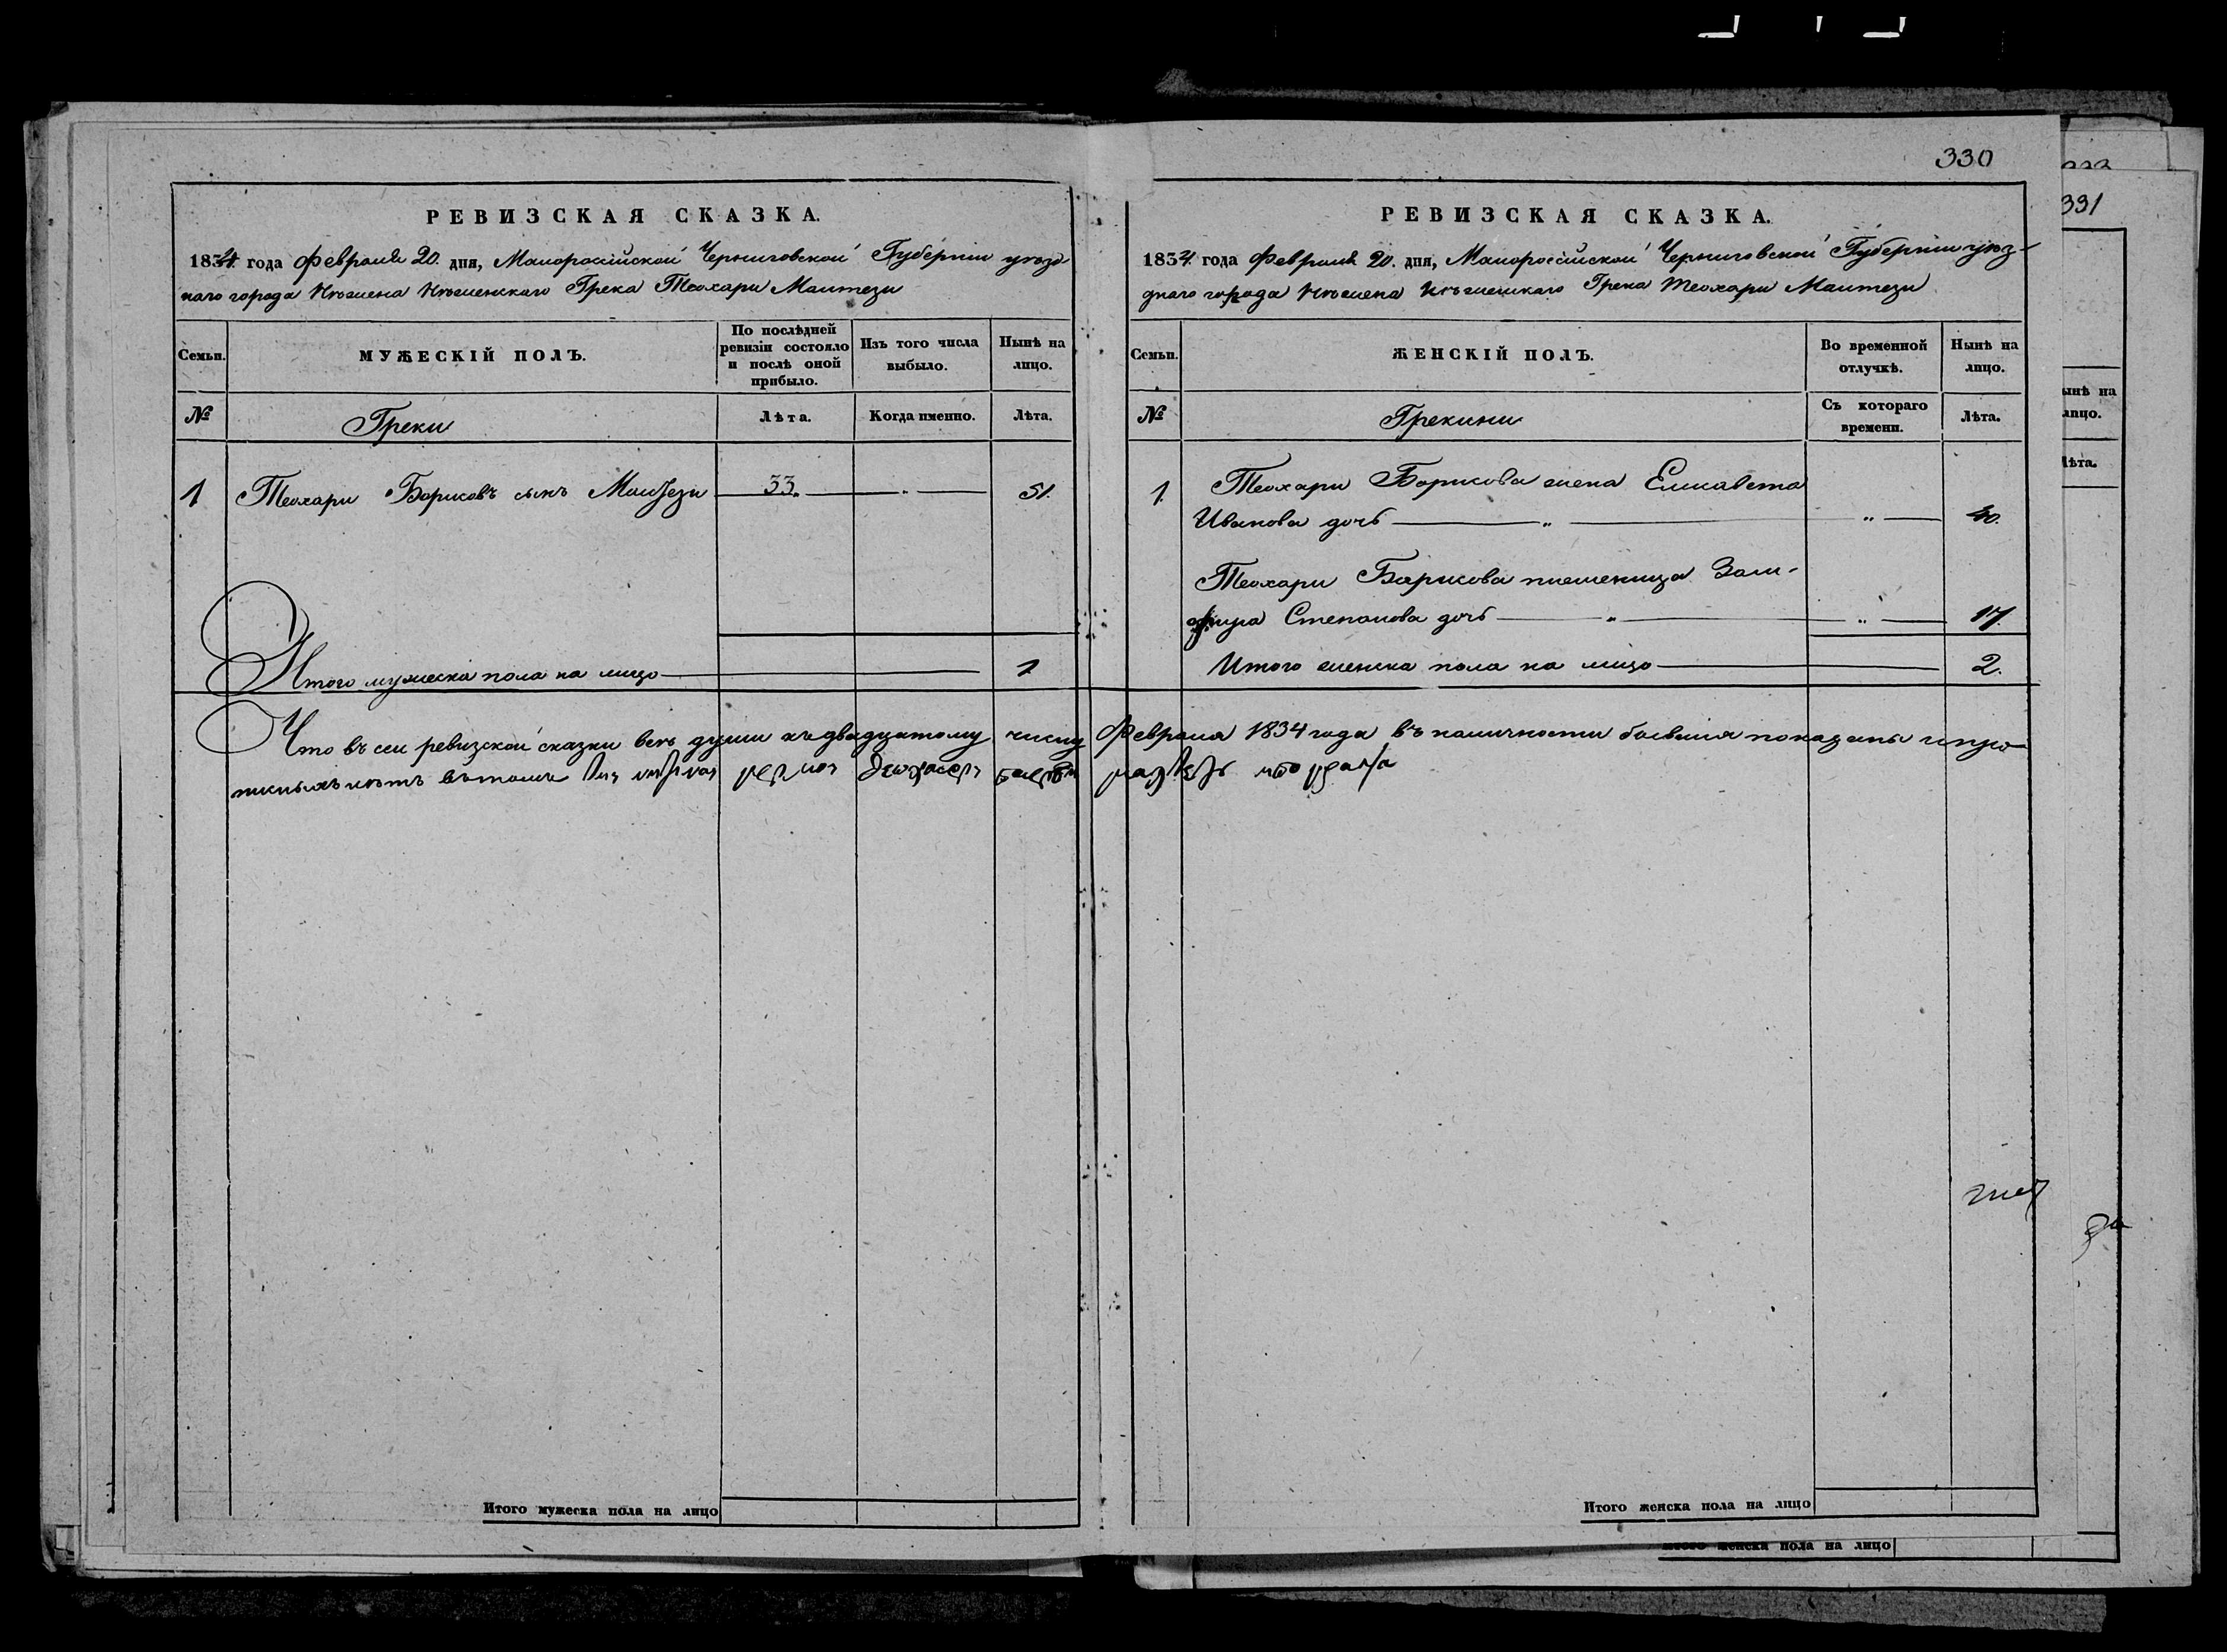 330
331
РЕВИЗСКАЯ СКАЗКА.
1834 года Февраля 20. дня, Малороссійской Черниговской Губерніи уезд
наго города Нѣжена Нѣженскаго Грека Теохари Мантези
Семьи.
МУЖЕСКІЙ ПОЛЪ.
По послѣдней
ревизіи состояло
и послѣ оной
прибыло.
Изъ того числа
выбыло.
Нынѣ на
лицо.
№
Греки
Лѣта.
Когда именно.
Лѣта.
1 Теохари Борисовъ сынъ Мантези 33. 51.
Итого мужеска пола на лицо 1
РЕВИЗСКАЯ СКАЗКА.
1834 года Февраля 20. дня, Малороссійской Черниговской Губерніи уез-
днаго города Нѣжена Нѣженскаго Грека Теохари Мантези
Семьи.
ЖЕНСКІЙ ПОЛЪ.
Во временной
отлучкѣ.
Нынѣ на
лицо.
№
Грекини
Съ котораго
времени.
Лѣта.
1. Теохари Борисова жена Елисавета
Иванова дочь 40.
Теохари Борисова племеница Зам-
фира Степанова дочь 17.
Итого женска пола на лицо 2.
Что въ сей ревизской сказки всѣ души къ двадцатому числу Февраля 1834 года въ наличности бывшия показаны и про
писныхъ нѣтъ въ томъ
Итого мужеска пола на лицо
Итого женска пола на лицо
ынѣ на
лицо.
Лѣта.
женска пола на лицо